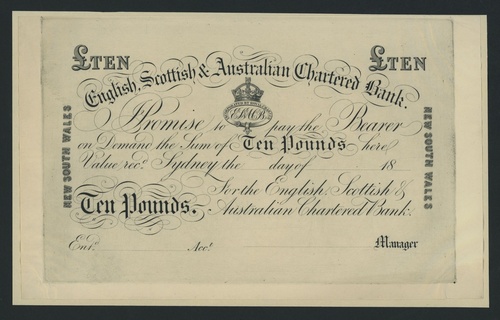 £TEN £TEN
English, Scottish & Australian Chartered Bank.
Promise to pay the Bearer
on Demand the Sum of Ten Pounds here
Value rec.d Sydney the day of 18
For the English, Scottish &
Ten Pounds. Australian Chartered Bank.
Ent.d Acc.t Manager
NEW SOUTH WALES
NEW SOUTH WALES